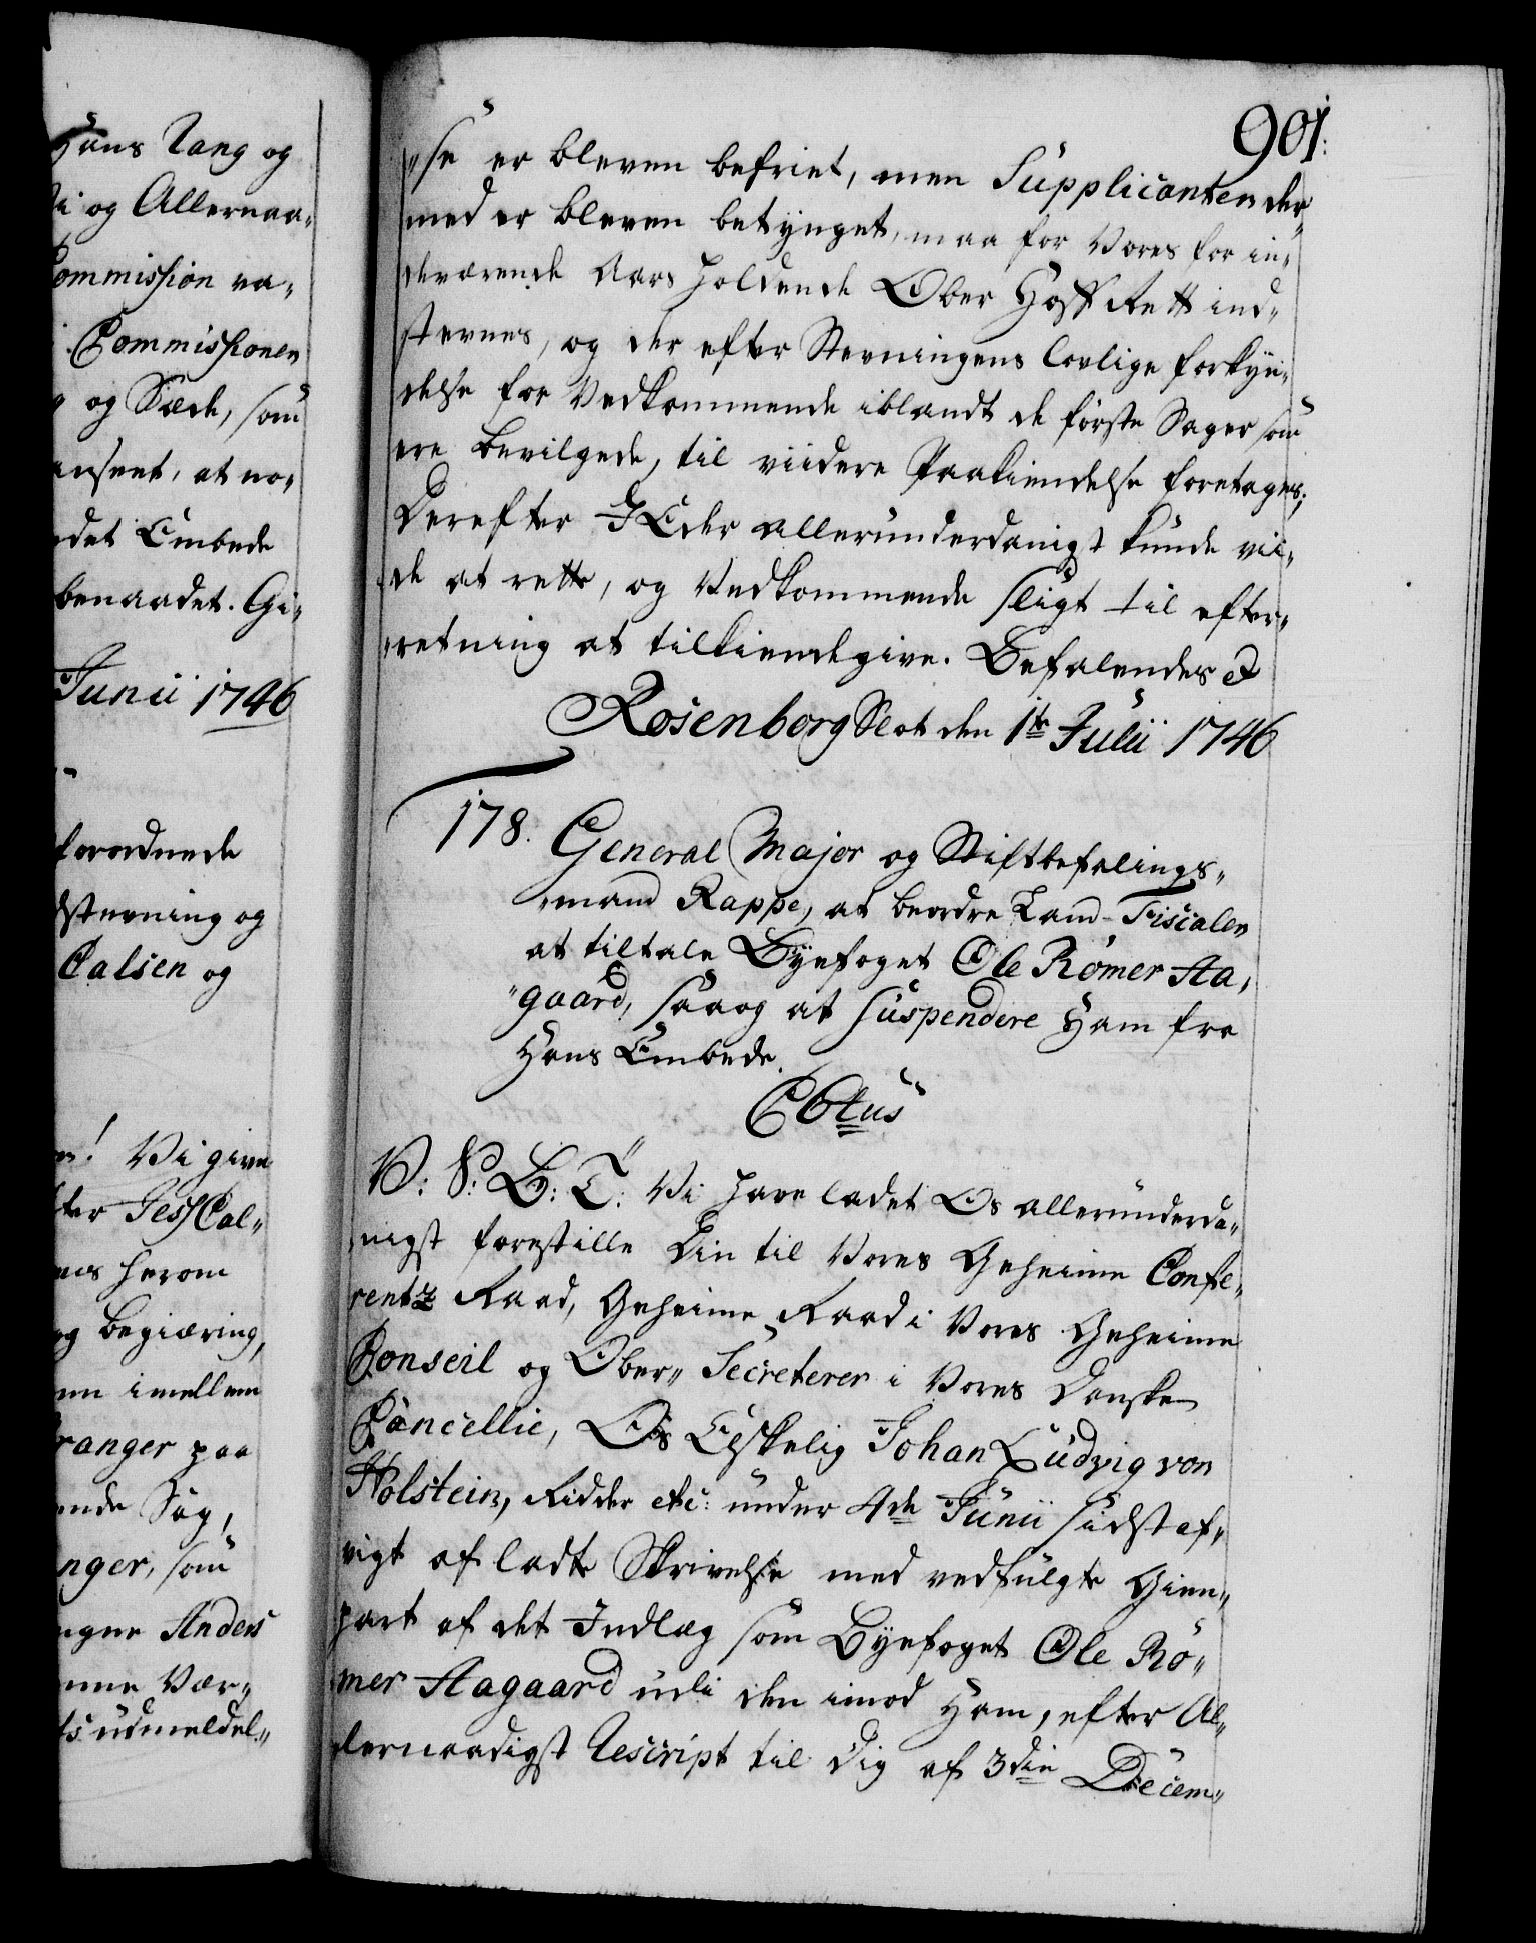 Hans Tang og
i og Allernaa-
Commission va-
Commissionen
og Sæde, som
anseet, at no-
det Embede
benaadet. Gi-
Junii 1746
forordnede
dstevning og
Calsen og
Vi give
ter Jess Cal-
herom
og begiæring,
imellem
ranger paa
ende Sag,
nger, som
Anders
Vær-
udmeldel-
901.
"se er bleven befriet, men Supplicanten der-
med er bleven betynget, maa for Vores for in-
deværende Aars holdende Ober Hoff Rett ind-
stevnes, og der efter Stevningens lovlige forkyn-
delse for Vedkommende iblandt de første Sager som
ere bevilgede, til viidere Paakiendelse foretages;
Derefter I Eder allerunderdanigst kunde vii-
de at rette, og Vedkommende sligt til efter-
retning at tilkiendegive. Befalendes etc
Rosenborg Slot den 1te Julii 1746
178. General Major og Stiftbefalings-
mand Rappe, at beordre Land-Fiscalen
at tiltale Byefoget Ole Rømer Aa-
"gaard, saa og at suspendere Ham fra
Hans Embede.
C6tus
V: S: B: T: Vi have ladet Os allerunderda-
nigst forestille Din til Vores Geheime Confe-
rentz Raad, Geheime Raad i Vores Geheime
Conseil og Ober- Secreterer i Vores Danske
Cancellie, Os Elskelig Johan Ludvig von
Holstein, Ridder etc: under 4de Junii sidst af-
vigt afladte Skrivelse med vedfulgte Gien-
part af det Indlæg som Byefoget Ole Rø-
mer Aagaard udi den imod Ham, efter Al-
lernaadigst Rescript til Dig af 3die Decem-